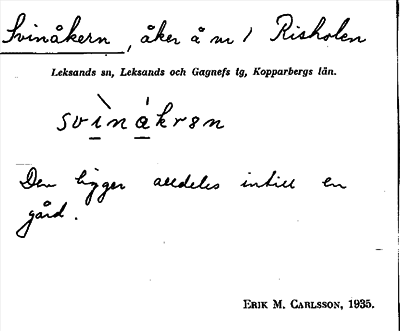 Svinåkern, åker å nr 1 Risholen
Leksands sn, Leksands och Gagnefs tg, Kopparbergs län.
svìnákrən
Den ligger alldeles intill en
gård.
ERIK M. CARLSSON, 1935.